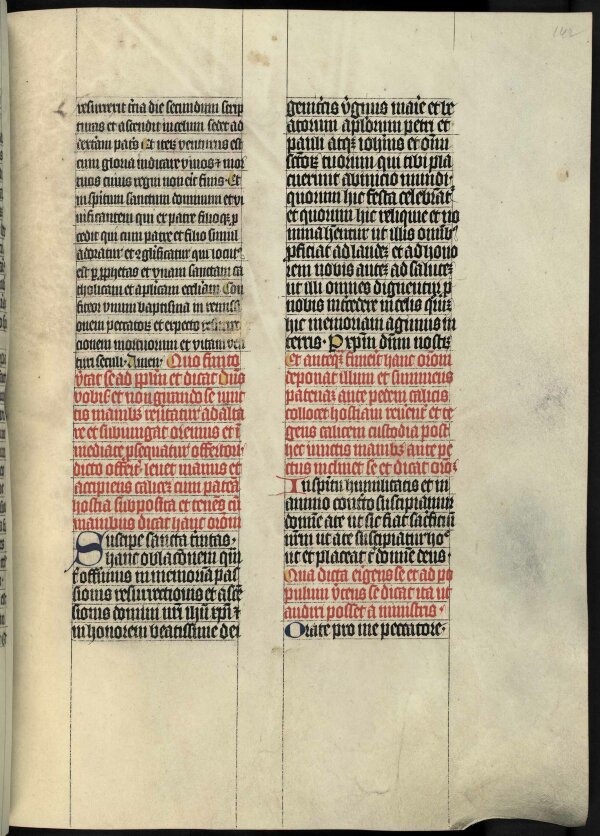 142
resurrexit t̄cia die secundum scrip
turas et ascendit in celum sedet ad
dexteram pat̄s Et iteȝ venturus est
cum gloria iudicare viuos ⁊ mor
tuos cuius regni non erit finis Et
in spiritum sanctum dominum et vi
uificantem qui ex patre filioqȝ ꝓ
cedit qui cum patre et filio simul
adoratur et ꝯglificatur qui locut᷒
est ꝑ ꝓphetas et vnam sanctam ca
tholicam et aplicam eccliam Con
fiteor vnum baptisma in remissi
onem peccatoꝝ et expecto resurrec
cionem mortuorum et vitam ven
turi seculi Amen Quo finito
v̄tat se ad ppl̄m et dicat Dn̄s
vobiscū et non girando se iunc
tis manibȝ reūtatur ad alta
re et subiungat oremus et ī
mediate ꝓsequatur offertoriū
dicto offertō leuet manus et
accipiens caliceȝ cum patena
hostia supposita et tenens cū
manibus dicat hanc orōnē
Suscipe sancta trinitas
hanc oblacionem quā
t̄ offerimus in memoriā pas
sionis resurrectionis et ascē
sionis domini nr̄i ihū xp̄i ⁊
in honorem beatissime dei
genitricis v̄ginis marie et be
atorum apl̄orum petri et
pauli atqȝ iohīnis et om̄i
sctōꝝ tuorum qui tibi pla
cuerunt ab inicio mundi
quorum hic festa celebrāt᷒
et quorum hic reliquie et no
mina hn̄tur ut illis omibȝ
ꝓficiat ad laudeȝ et ad hono
rem nobis auteȝ ad saluteȝ
ut illi omnes dignentur ꝓ
nobis intercedere in celis quoꝝ
hic memoriam agimus in
terris Per xp̄m dn̄m nostꝝ
Et anteqȝ finierit hanc orōnē
deponat illum et sumniens
patenaȝ ante pedem calicis
collocet hostiam reuerent̄ et te
gens calicem custodia post
hec iunctis manibȝ ante pe
ctus inclinet se et dicat orōnē
In spiritu humilitatis et in
animo contrito suscipiamur
domīe a te ut sic fiat sacrificiū
nr̄m ut a te suscipiatur ho᷒
ut et placeat t̄ domīe deus
Qua dicta erigens se et ad po
pulum v̄tens se dicat ita ut
audiri posset a ministris
Orate pro me peccatore